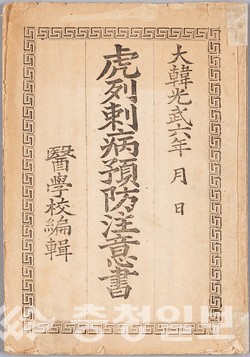 大韓光武六年 月 日
虎列剌病預防注意書
醫學校編輯
충청일보